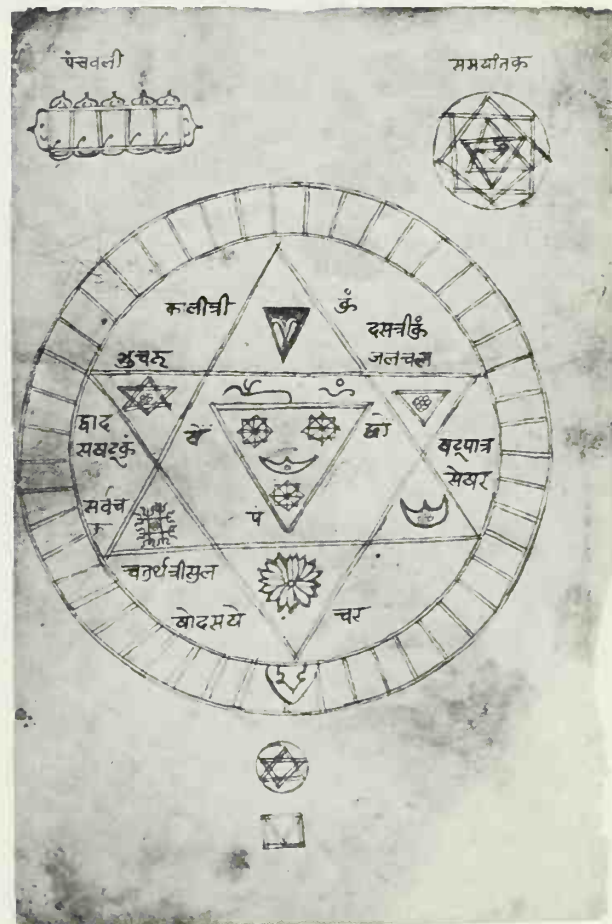 पंचवली
समयांतक
कालीत्री
कुं
दसत्रीकुं
जलचल
भुचल
द्वाद
सखट्कं
षट्पात्र
सेखर
सर्वच
पं
चतुर्थत्रीसुल
षोदसये
चर